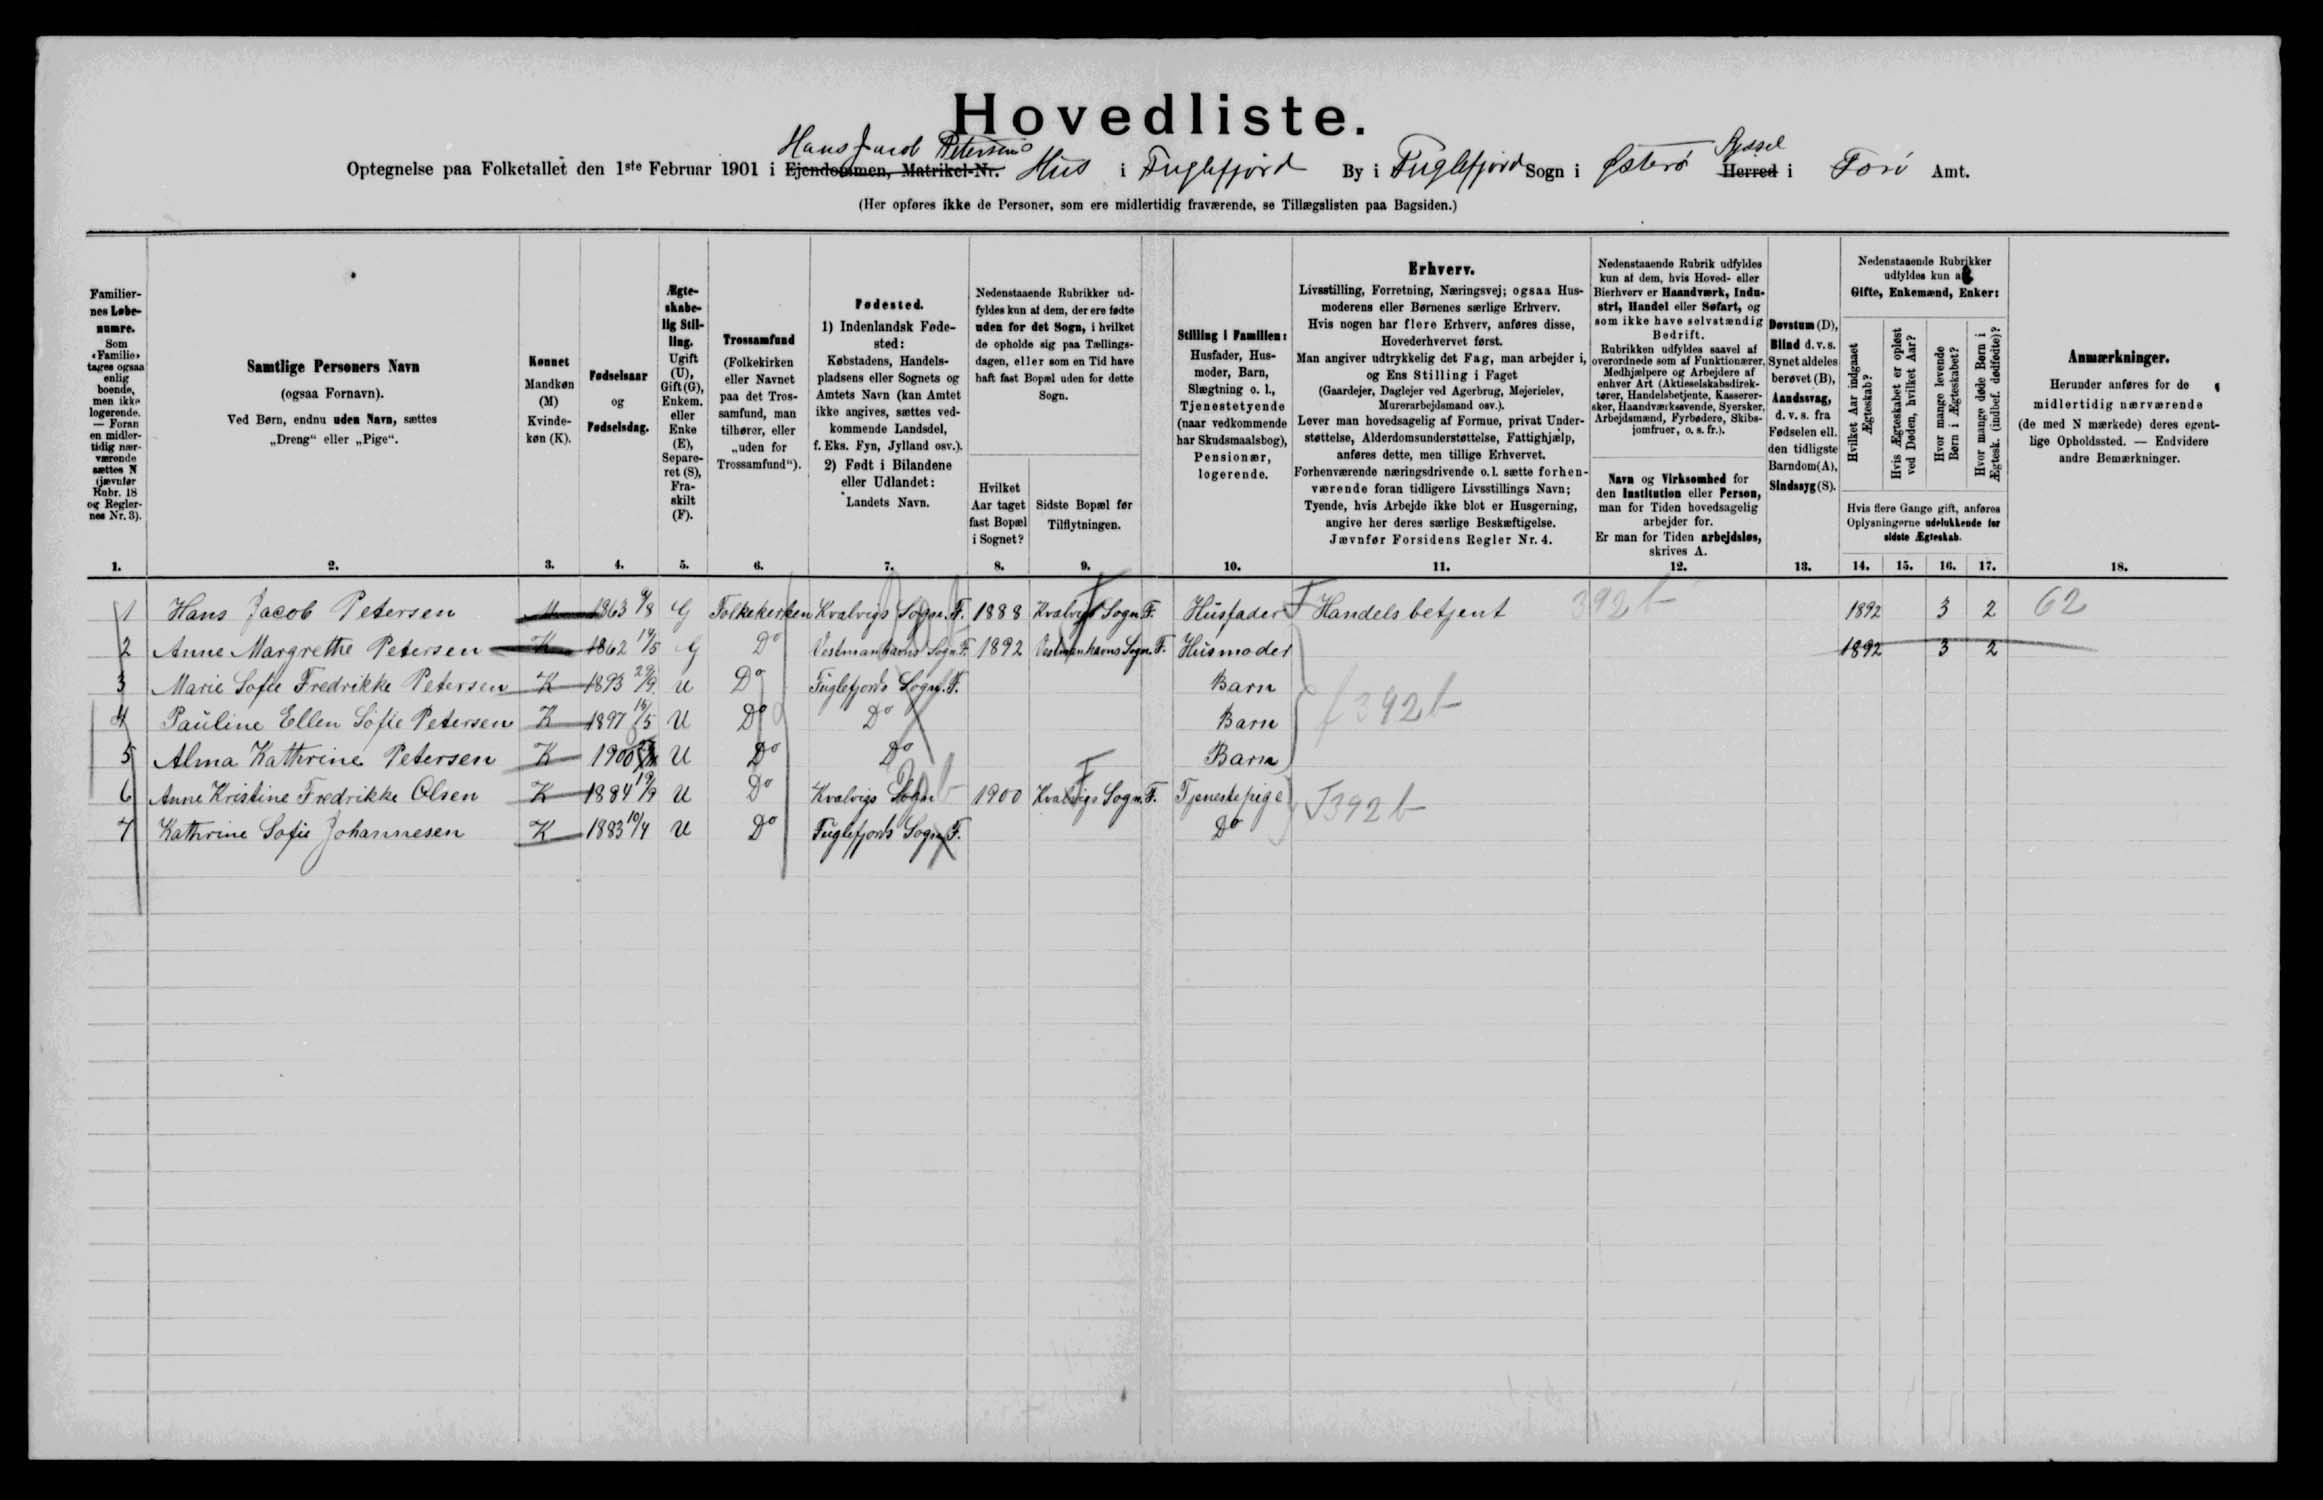 Hovedliste.
Hans Jacob Petersens
Optegnelse paa Folketallet den 1ste Februar 1901 i Ejendommen, Matrikel-Nr. Hus i Fuglefjord By i Fuglefjord Sogn i Østerø Herred Syssel i Færø Amt.
(Her opføres ikke de Personer, som ere midlertidig fraværende, se Tillægslisten paa Bagsiden.)
Familier-
nes Løbe-
numre.
Som
«Familie»
tages ogsaa
enlig
boende,
men ikke
logerende.
— Foran
en midler-
tidig nær-
værende
sættes N
(jævnfør
Rubr. 18
og Regler-
nes Nr. 3).
1.
Samtlige Personers Navn
(ogsaa Fornavn).
Ved Børn, endnu uden Navn, sættes
„Dreng“ eller „Pige“.
2.
Kønnet
Mandkøn
(M)
Kvinde-
køn (K).
3.
Fødselsaar
og
Fødselsdag.
4.
Ægte-
skabe-
lig Stil-
ling.
Ugift
(U),
Gift (G),
Enkem.
eller
Enke
(E),
Separe-
ret (S),
Fra-
skilt
(F).
5.
Trossamfund
(Folkekirken
eller Navnet
paa det Tros-
samfund, man
tilhører, eller
„uden for
Trossamfund“).
6.
Fødested.
1) Indenlandsk Føde-
sted:
Købstadens, Handels-
pladsens eller Sognets og
Amtets Navn (kan Amtet
ikke angives, sættes ved-
kommende Landsdel,
f. Eks. Fyn, Jylland osv.).
2) Født i Bilandene
eller Udlandet:
Landets Navn.
7.
Nedenstaaende Rubrikker ud-
fyldes kun af dem, der ere fødte
uden for det Sogn, i hvilket
de opholde sig paa Tællings-
dagen, eller som en Tid have
haft fast Bopæl uden for dette
Sogn.
Hvilket
Aar taget
fast Bopæl
i Sognet?
8.
Sidste Bopæl før
Tilflytningen.
9.
Stilling i Familien:
Husfader, Hus-
moder, Barn,
Slægtning o. l.,
Tjenestetyende
(naar vedkommende
har Skudsmaalsbog),
Pensionær,
logerende.
10.
Erhverv.
Livsstilling, Forretning, Næringsvej; ogsaa Hus-
moderens eller Børnenes særlige Erhverv.
Hvis nogen har flere Erhverv, anføres disse,
Hovederhvervet først.
Man angiver udtrykkelig det Fag, man arbejder i,
og Ens Stilling i Faget
(Gaardejer, Daglejer ved Agerbrug, Mejerielev,
Murerarbejdsmand osv.).
Lever man hovedsagelig af Formue, privat Under-
støttelse, Alderdomsunderstøttelse, Fattighjælp,
anføres dette, men tillige Erhvervet.
Forhenværende næringsdrivende o. l. sætte forhen-
værende foran tidligere Livsstillings Navn;
Tyende, hvis Arbejde ikke blot er Husgerning,
angive her deres særlige Beskæftigelse.
Jævnfør Forsidens Regler Nr. 4.
11.
Nedenstaaende Rubrik udfyldes
kun af dem, hvis Hoved- eller
Bierhverv er Haandværk, Indu-
stri, Handel eller Søfart, og
som ikke have selvstændig
Bedrift.
Rubrikken udfyldes saavel af
overordnede som af Funktionærer,
Medhjælpere og Arbejdere af
enhver Art (Aktieselskabsdirek-
tører, Handelsbetjente, Kasserer-
sker, Haandværkssvende, Syersker,
Arbejdsmænd, Fyrbødere, Skibs-
jomfruer, o. s. fr.).
Navn og Virksomhed for
den Institution eller Person,
man for Tiden hovedsagelig
arbejder for.
Er man for Tiden arbejdsløs,
skrives A.
12.
Døvstum (D),
Blind d. v. s.
Synet aldeles
berøvet (B),
Aandssvag,
d. v. s. fra
Fødselen ell.
den tidligste
Barndom (A),
Sindssyg (S).
13.
Nedenstaaende Rubrikker
udfyldes kun af
Gifte, Enkemænd, Enker:
Hvilket Aar indgaaet
Ægteskab?
Hvis Ægteskabet er opløst
ved Døden, hvilket Aar?
Hvor mange levende
Børn i Ægteskabet?
Hvor mange døde Børn i
Ægtesk. (indbef. dødfødte)?
Hvis flere Gange gift, anføres
Oplysningerne udelukkende for
sidste Ægteskab.
14. 15. 16. 17.
Anmærkninger.
Herunder anføres for de
midlertidig nærværende
(de med N mærkede) deres egent-
lige Opholdssted. — Endvidere
andre Bemærkninger.
18.
1 Hans Jacob Petersen M 1863 9/8 G Folkekirken Kvalvigs Sogn. F. 1888 Kvalvigs Sogn. F. Husfader F Handelsbetjent 392 b 1892 3 2 62
2 Anne Margrethe Petersen K 1862 G Do Vestmanhavns Sogn. F. 1892 Vestmanhavns Sogn. F. Husmoder 1892 3 2
3 Marie Sofie Fredrikke Petersen K 1893 U Do Fuglefjords Sogn. F. Barn
4 Pauline Ellen Sofie Petersen K 1897 U Do Do Barn f 392 b
5 Alma Kathrine Petersen K 1900 U Do Do Barn
6 Anne Kristine Fredrikke Olsen K 1884 19/9 U Do Kvalvigs Sogn 1900 Kvalvigs Sogn. F. Tjenestepige F 392 b
7 Kathrine Sofie Johannesen K 1883 10/4 U Do Fuglefjords Sogn. F. Do